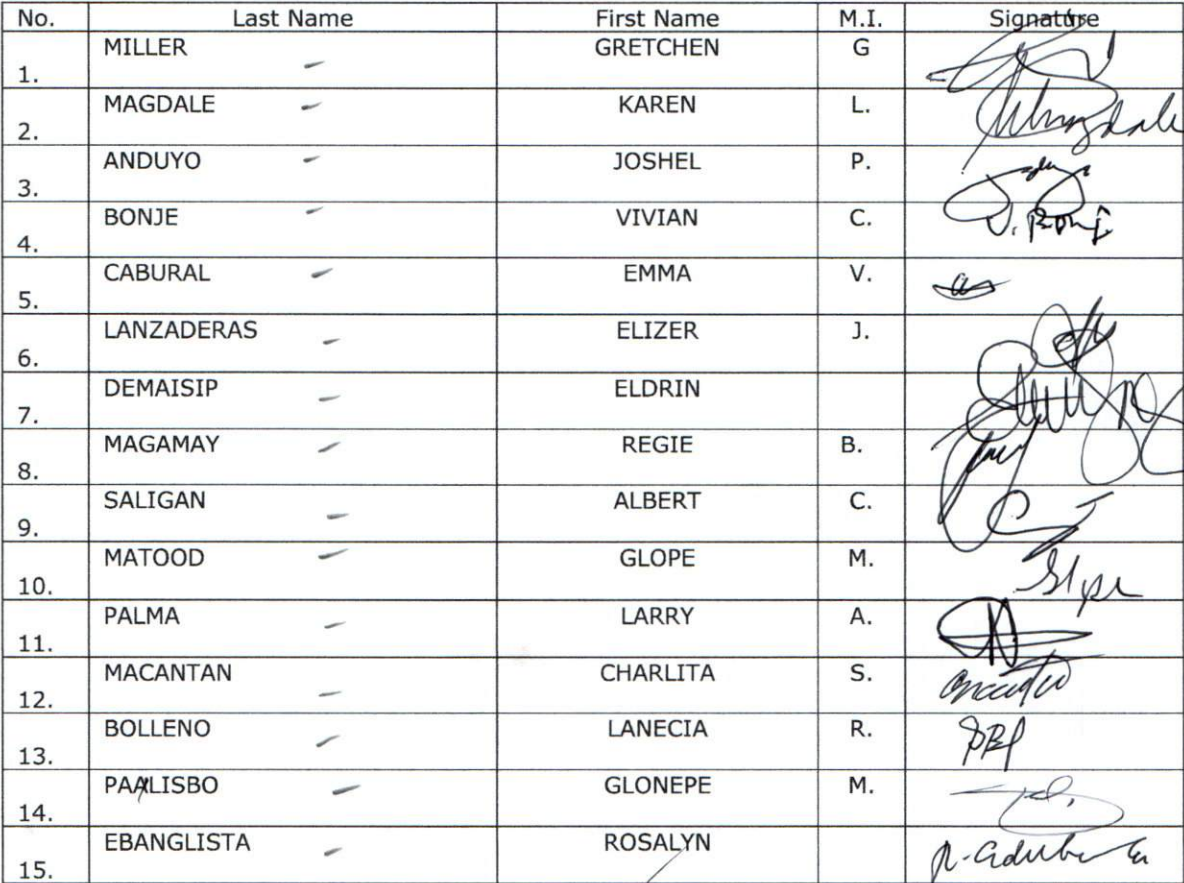 No. Last Name First Name M.I. Signature
1. MILLER GRETCHEN G
2. MAGDALE KAREN L.
3. ANDUYO JOSHEL P.
4. BONJE VIVIAN C.
5. CABURAL EMMA V.
6. LANZADERAS ELIZER J.
7. DEMAISIP ELDRIN
8. MAGAMAY REGIE B.
9. SALIGAN ALBERT C.
10. MATOOD GLOPE M.
11. PALMA LARRY A.
12. MACANTAN CHARLITA S.
13. BOLLENO LANECIA R.
14. PAALISBO GLONEPE M.
15. EBANGLISTA ROSALYN